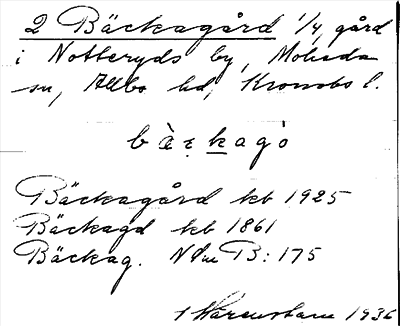 2 Bäckagård 1/4, gård
i Notteryds by, Moheda
sn, Allbo hd, Kronobs l.
bàckagò
Bäckagård kb 1925
Bäckagd kb 1861
Bäckag. B: 175
1936